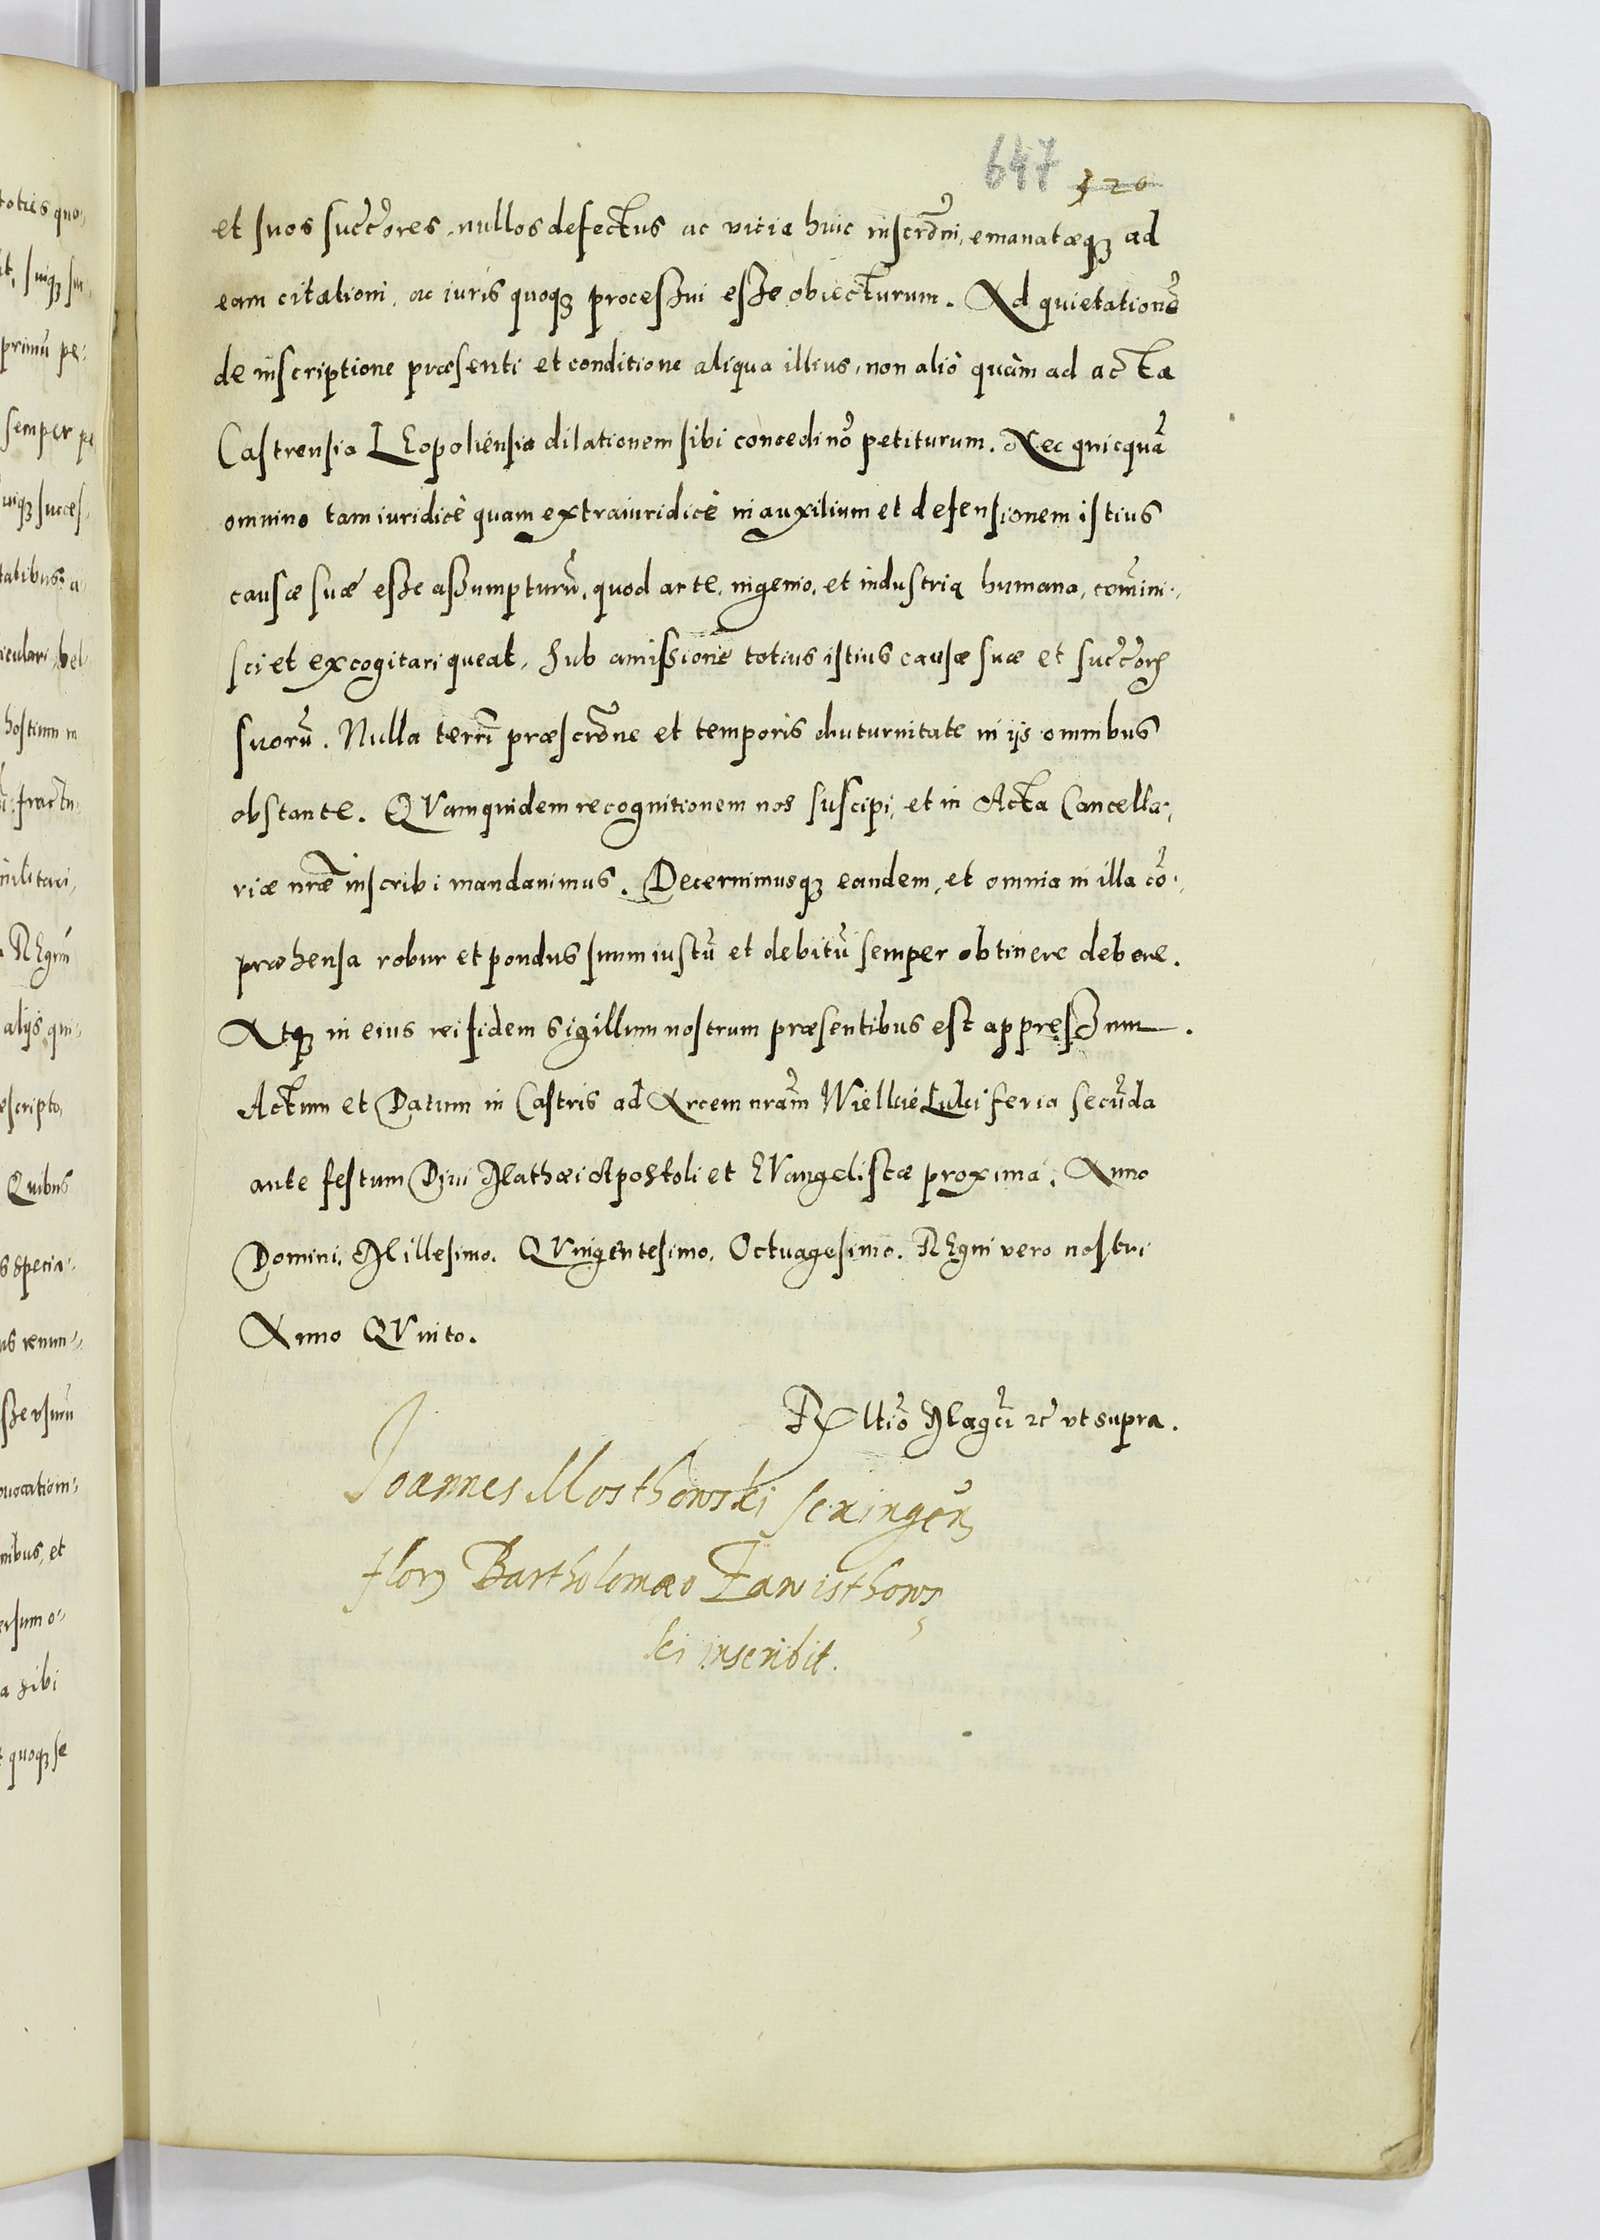 647 320
et suos succ̃ores, nullos defectus ac vicia huic inscrõni, emanatæq3 ad
eam citationi, ac iuris quoq3 processui esse obiecturum. Ad quietationẽ
de inscriptione præsenti et conditione aliqua illius, non aliò quàm ad acta
Castrensia LEopoliensia dilationem sibi concedi nõ petiturum. Nec quicquã
omnino tam iuridicè quam extraiuridicè in auxilium et defensionem istius
causæ suæ esse assumpturũ, quod arte, ingenio, et industria humana, com̃ini-
sci et excogitari queat, sub amissione totius istius causæ suæ et succ̃orum
suorũ. Nulla terr̃i præscrõne et temporis diuturnitate in ijs omnibus
obstante. QVam quidem recognitionem nos suscipi, et in Acta Cancella-
riæ nr̃æ inscribi mandauimus. Decernimusq3 eandem, et omnia in illa cõ-
præhensa robur et pondus suum iustũ et debitũ semper obtinere debere.
Atq3 in eius rei fidem sigillum nostrum præsentibus est appressum.
Actum et Datum in Castris ad Arcem nr̃am Wielkie Luki feria secũda
ante festum Diui Mathæi Apostoli et EVangelistæ proxima, Anno
Domini, Millesimo. QVingentesimo, Octuagesimo. REgni vero nostri
Anno QVinto.
Rltiõ Magci 2c̃ vt supra.
Joannes Mosthowski sexingen
flor Bartholomæo Zawisthows
ki inscribit.
toties quo-
primũ pe-
semper pe
uiq3 succes-
tatibus, a-
iculari, vel
hostium in
fractu-
militari,
REgnũ
alijs qui-
escripto,
Quibus
s specia-
us renun-
sse vsurũ
ouocation-
nibus, et
ersum o-
a sibi
quoq3 se